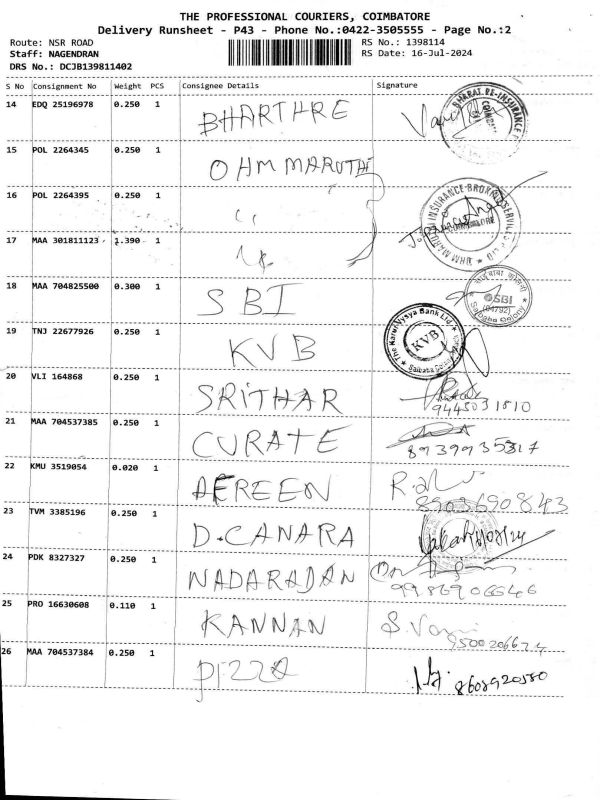 THE PROFESSIONAL COURIERS, COIMBATORE
Delivery Runsheet - P43 - Phone No.:0422-3505555 - Page No.:2
Route: NSR ROAD
RS No.: 1398114
Staff: NAGENDRAN
RS Date: 16-Jul-2024
DRS No.: DCJB139811402
S No Consignment No Weight PCS Consignee Details Signature
14 EDQ 25196978 0.250 1 BHARTHRE
BHARAT RE-INSURANCE
15 POL 2264345 0.250 1 OHM MARUTHI
16 POL 2264395 0.250 1 "
INSURANCE BROKING SERVICES
17 MAA 301811123 1.390 1 "
18 MAA 704825500 0.300 1 SBI
SBI
(04792)
Saibaba Colony
19 TNJ 22677926 0.250 1 KVB
The Karur Vysya Bank Ltd.
KVB
Saibaba Colony
20 VLI 164868 0.250 1 SRITHAR
9445031810
21 MAA 704537385 0.250 1 CURATE
8939935317
22 KMU 3519054 0.020 1 AFREEN
8903690843
23 TVM 3385196 0.250 1 D.CANARA
24 PDK 8327327 0.250 1 NADARAJAN
9987906646
25 PRO 16630608 0.110 1 KANNAN
26 MAA 704537384 0.250 1 PIZZA
8608920580